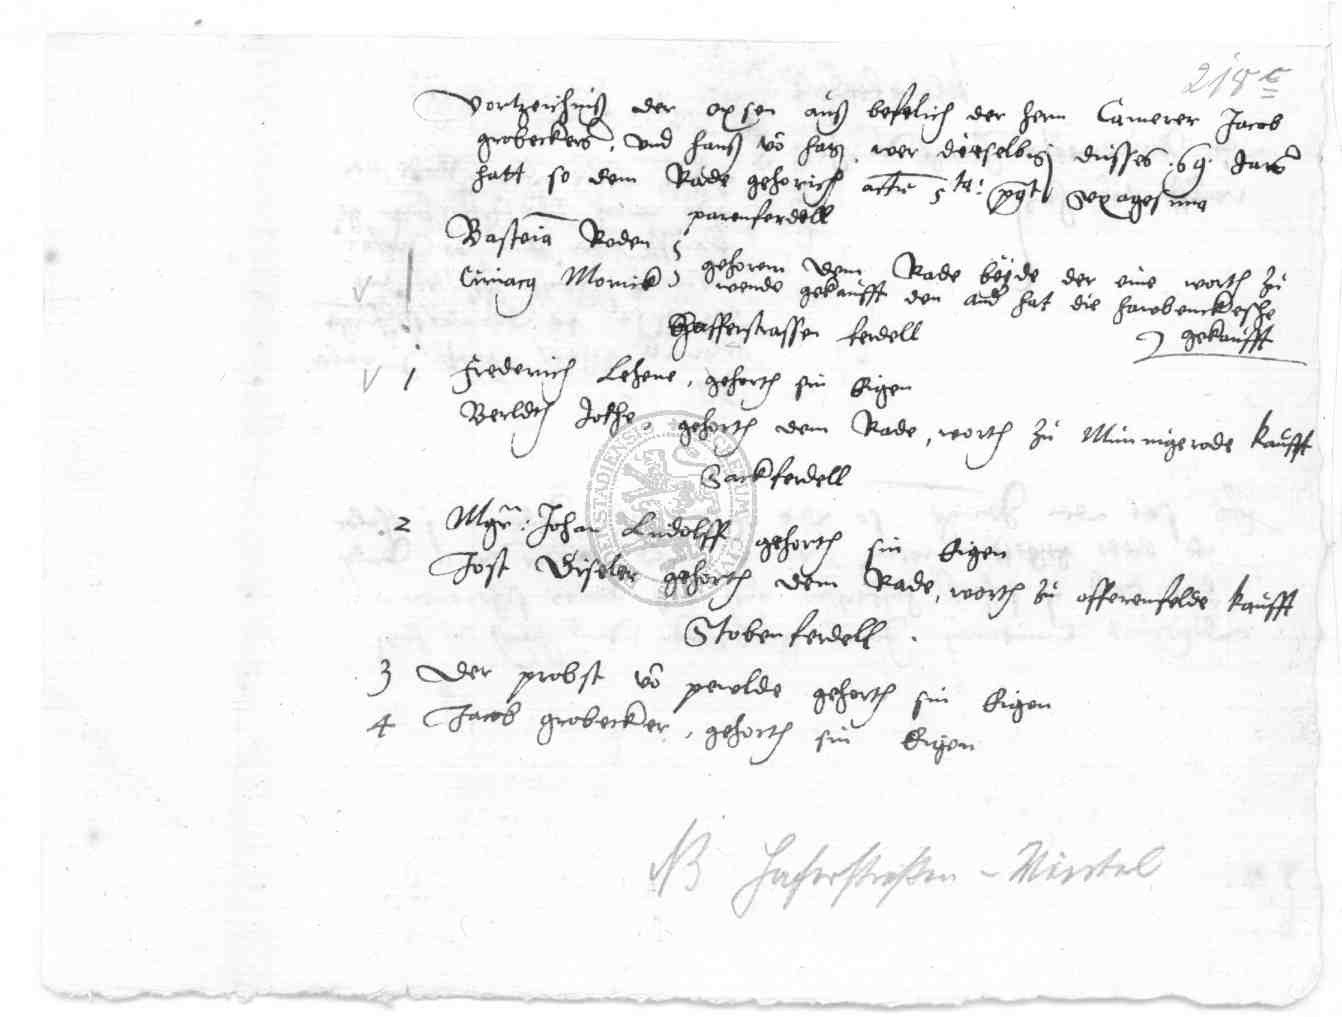 218 c
Vortzeichnuß der oxsen auß befelich der hern Camerer Jacob
grobeckers, und hanß vō hag, wer dieselbig disses 69 Jars
hatt so dem Rade gehorich actū 5ta: pgt sexagesima
parenferdell
Bastein Roden
Ciriacq Mornick gehoren dem Rade beÿde der eine worth zu
wende gekaufft den and hat die hardencksche
gekaufft
Hafferstrassen ferdell
1 Frederich Lehene, gehorth sin Eigen
Berldt Jothe, gehorth dem Rade, worth zu Minnigerode kaufft
Sackferdell
2 Mgr: Johan Ludolff gehorth sin Eigen
Jost Diseler gehorth dem Rade, worth zu offerenfelde kaufft
Stobenferdell
3 Der probst vō polde gehorth sin Eigen
4 Jacob grobecker, gehorth sin Eigen
NB Haferstraßen-Viertel